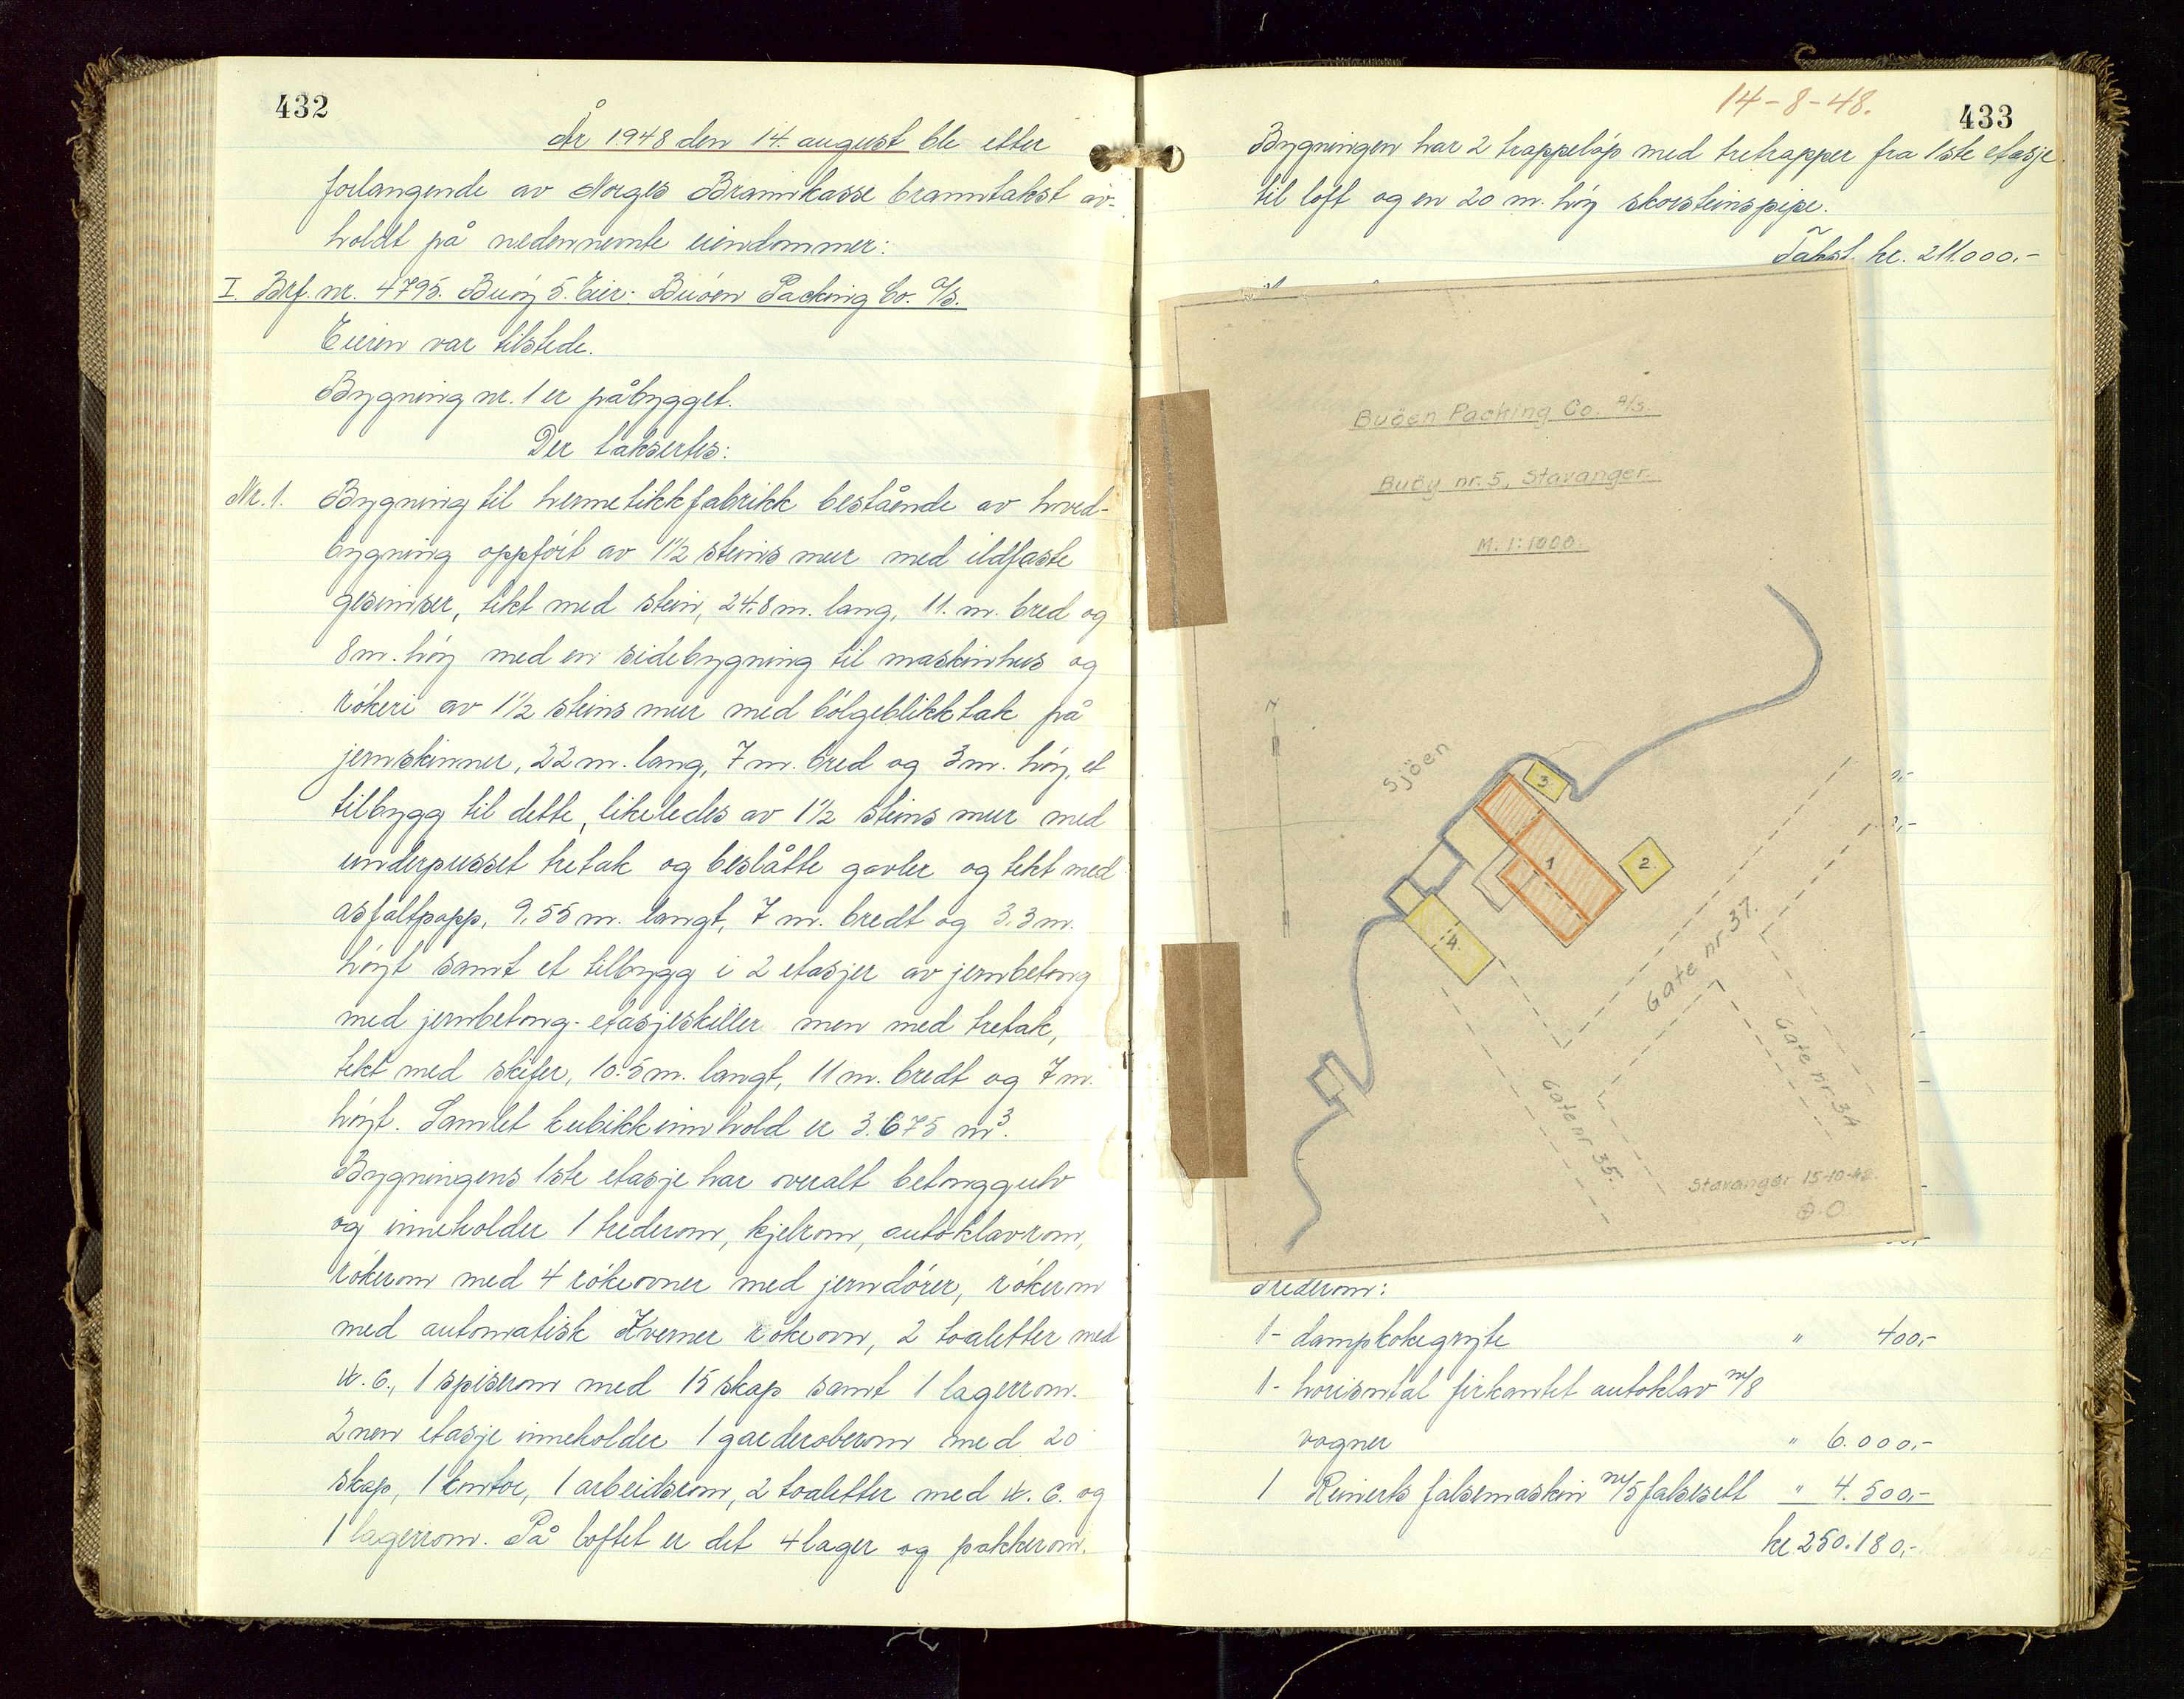 432
År 1948 den 14. august ble etter
forlangende av Norges Brannkasse branntakst av-
holdt på nedennevnte eiendommer:
I. Brf. nr. 4795. Buøy 5. Eier: Buöen Packing Co. A/S.
Eieren var tilstede.
Bygning nr. 1 er påbygget.
Der taksertes:
Nr. 1. Bygning til hermetikkfabrikk bestående av hoved-
bygning oppført av 1½ steins mur med ildfaste
gesimser, tekt med stein, 24.8 m. lang, 11. m. bred og
8 m. høy med en sidebygning til maskinhus og
rökeri av 1½ steins mur med bölgeblikktak på
jernskinner, 22 m. lang, 7 m. bred og 3 m. høy, et
tilbygg til dette, likeledes av 1½ steins mur med
underpusset tretak og beslåtte gavler og tekt med
asfaltpapp, 9,55 m. langt, 7 m. bredt og 3,3 m.
høyt samt et tilbygg i 2 etasjer av jernbetong
med jernbetong-etasjeskiller men med tretak,
tekt med skifer, 10.5 m. langt, 11 m. bredt og 7 m.
høyt. Samlet kubikkinnhold er 3.675 m³.
Bygningens 1ste etasje har overalt betonggulv
og inneholder 1 trederom, kjelrom, autoklavrom,
rökerom med 4 rökeovner med jerndörer, rökerom
med automatisk Kverner rökeovn, 2 toaletter med
W.C., 1 spiserom med 15 skap samt 1 lagerrom.
2nen etasje inneholder 1 garderoberom med 20
skap, 1 kontor, 1 arbeidsrom, 2 toaletter med W.C. og
1 lagerrom. På loftet er det 4 lager og pakkerom.
14-8-48.
433
Bygningen har 2 trappelöp med tretrapper fra 1ste etasje
til loft og en 20 m. høy skorsteinspipe.
Takst. kr. 211.000.-
Buöen Packing Co. A/S.
Buöy nr. 5, Stavanger.
M. 1:1000.
N
Sjöen
3
1
2.
4.
Gate nr. 37.
Gate nr. 34
Gate nr. 35.
Stavanger 15-10-48.
Ø.O.
Trederom:
1- dampkokegryte " 400,-
1- horisontal firkantet autoklav m/8
vogner " 6.000,-
1 Reinerts falsemaskin m/5 falsesett " 4.500,-
kr. 250.180,-